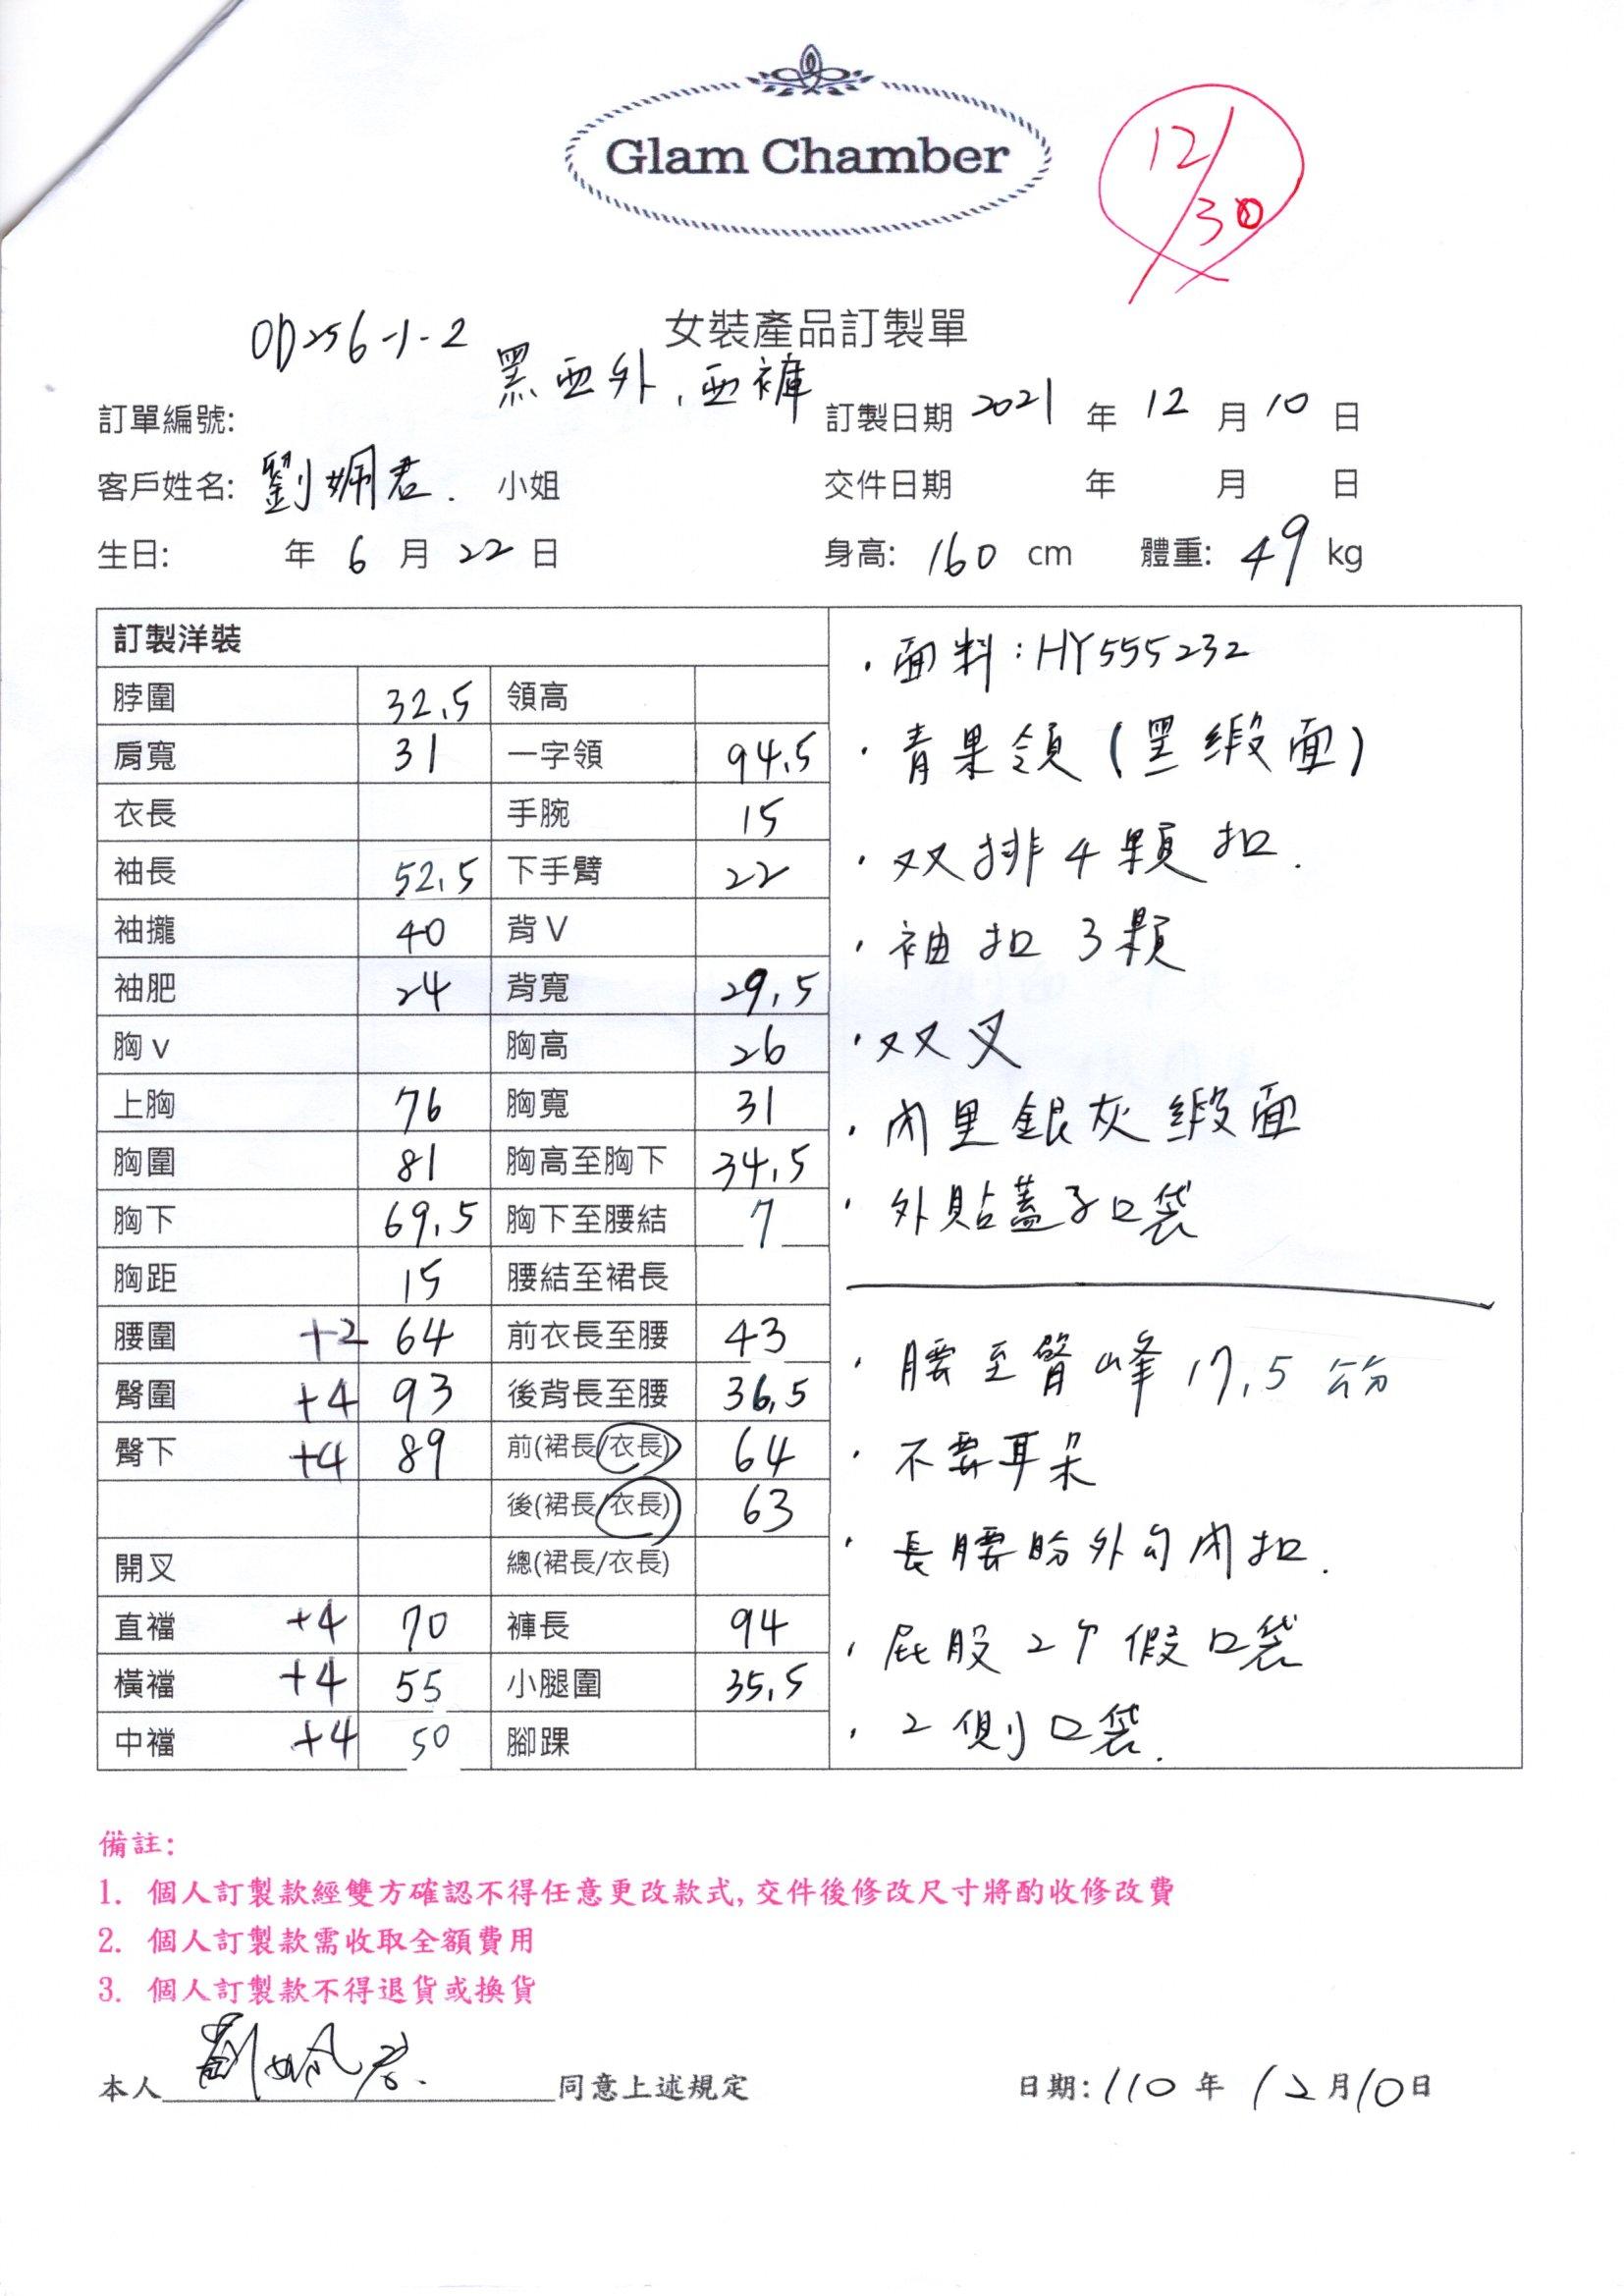 Glam Chamber
12/30
OD256-1-2
女裝產品訂製單
黑西外、西褲
訂單編號:
訂製日期 2021 年 12 月 10 日
客戶姓名: 劉姵君. 小姐
交件日期 年 月 日
生日: 年 6 月 22 日
身高: 160 cm 體重: 49 kg
訂製洋裝
脖圍 32.5 領高
肩寬 31 一字領 94.5
衣長 手腕 15
袖長 52.5 下手臂 22
袖攏 40 背V
袖肥 24 背寬 29.5
胸v 胸高 26
上胸 76 胸寬 31
胸圍 81 胸高至胸下 34.5
胸下 69.5 胸下至腰結 7
胸距 15 腰結至裙長
腰圍 +2 64 前衣長至腰 43
臀圍 +4 93 後背長至腰 36.5
臀下 +4 89 前(裙長/衣長) 64
後(裙長/衣長) 63
開叉 總(裙長/衣長)
直襠 +4 70 褲長 94
橫襠 +4 55 小腿圍 35.5
中襠 +4 50 腳踝
·面料:HY555232
·青果領(黑緞面)
·双排4顆扣.
·袖扣3顆
·双叉
·內里銀灰緞面
·外貼蓋子口袋
·腰至臀峰17.5公分
·不要耳朵
·長腰 外勾內扣.
·屁股2个假口袋
·2側口袋.
備註:
1. 個人訂製款經雙方確認不得任意更改款式,交件後修改尺寸將酌收修改費
2. 個人訂製款需收取全額費用
3. 個人訂製款不得退貨或換貨
本人 劉姵君. 同意上述規定
日期:110年 12月10日